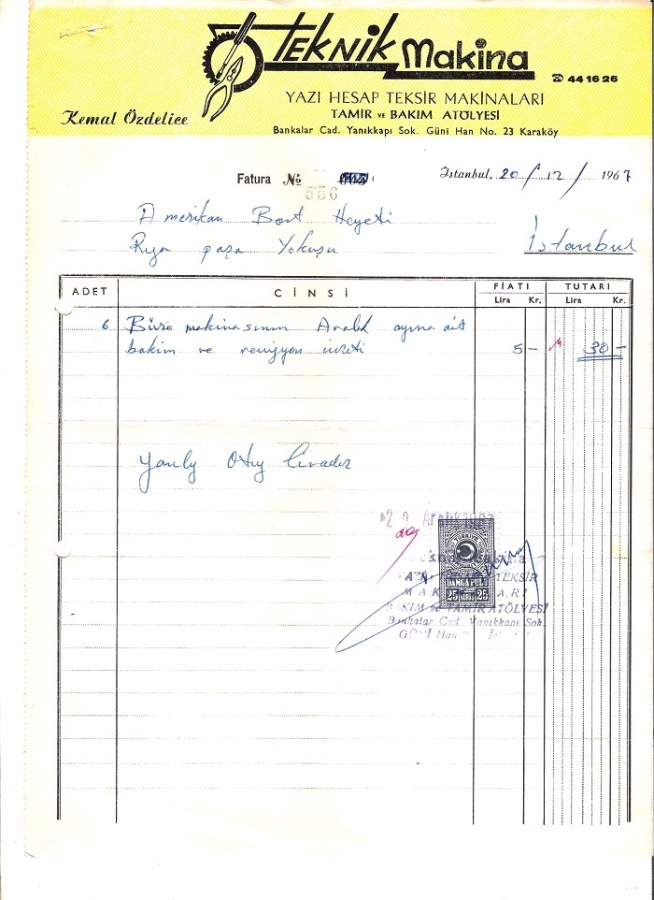 TEKNİK Makina
☎ 44 16 26
YAZI HESAP TEKSİR MAKİNALARI
Kemal Özdelice
TAMİR ve BAKIM ATÖLYESİ
Bankalar Cad. Yanıkkapı Sok. Güni Han No. 23 Karaköy
Fatura No
556
İstanbul, 20/12/1967
Amerikan Bort Heyeti
Rıza paşa Yokuşu İstanbul
ADET CİNSİ FİATI TUTARI
Lira Kr. Lira Kr.
6 Büro makinasının Aralık ayına ait
bakim ve revizyon ücreti 5 - 30 -
Yanlız Otuz liradır
TÜRKİYE
DAMGA PULU
25 KURUŞ 25
TEKSİR
BAKIM ve TAMİR ATÖLYESİ
Bankalar Cad. Yanıkkapı Sok.
Han